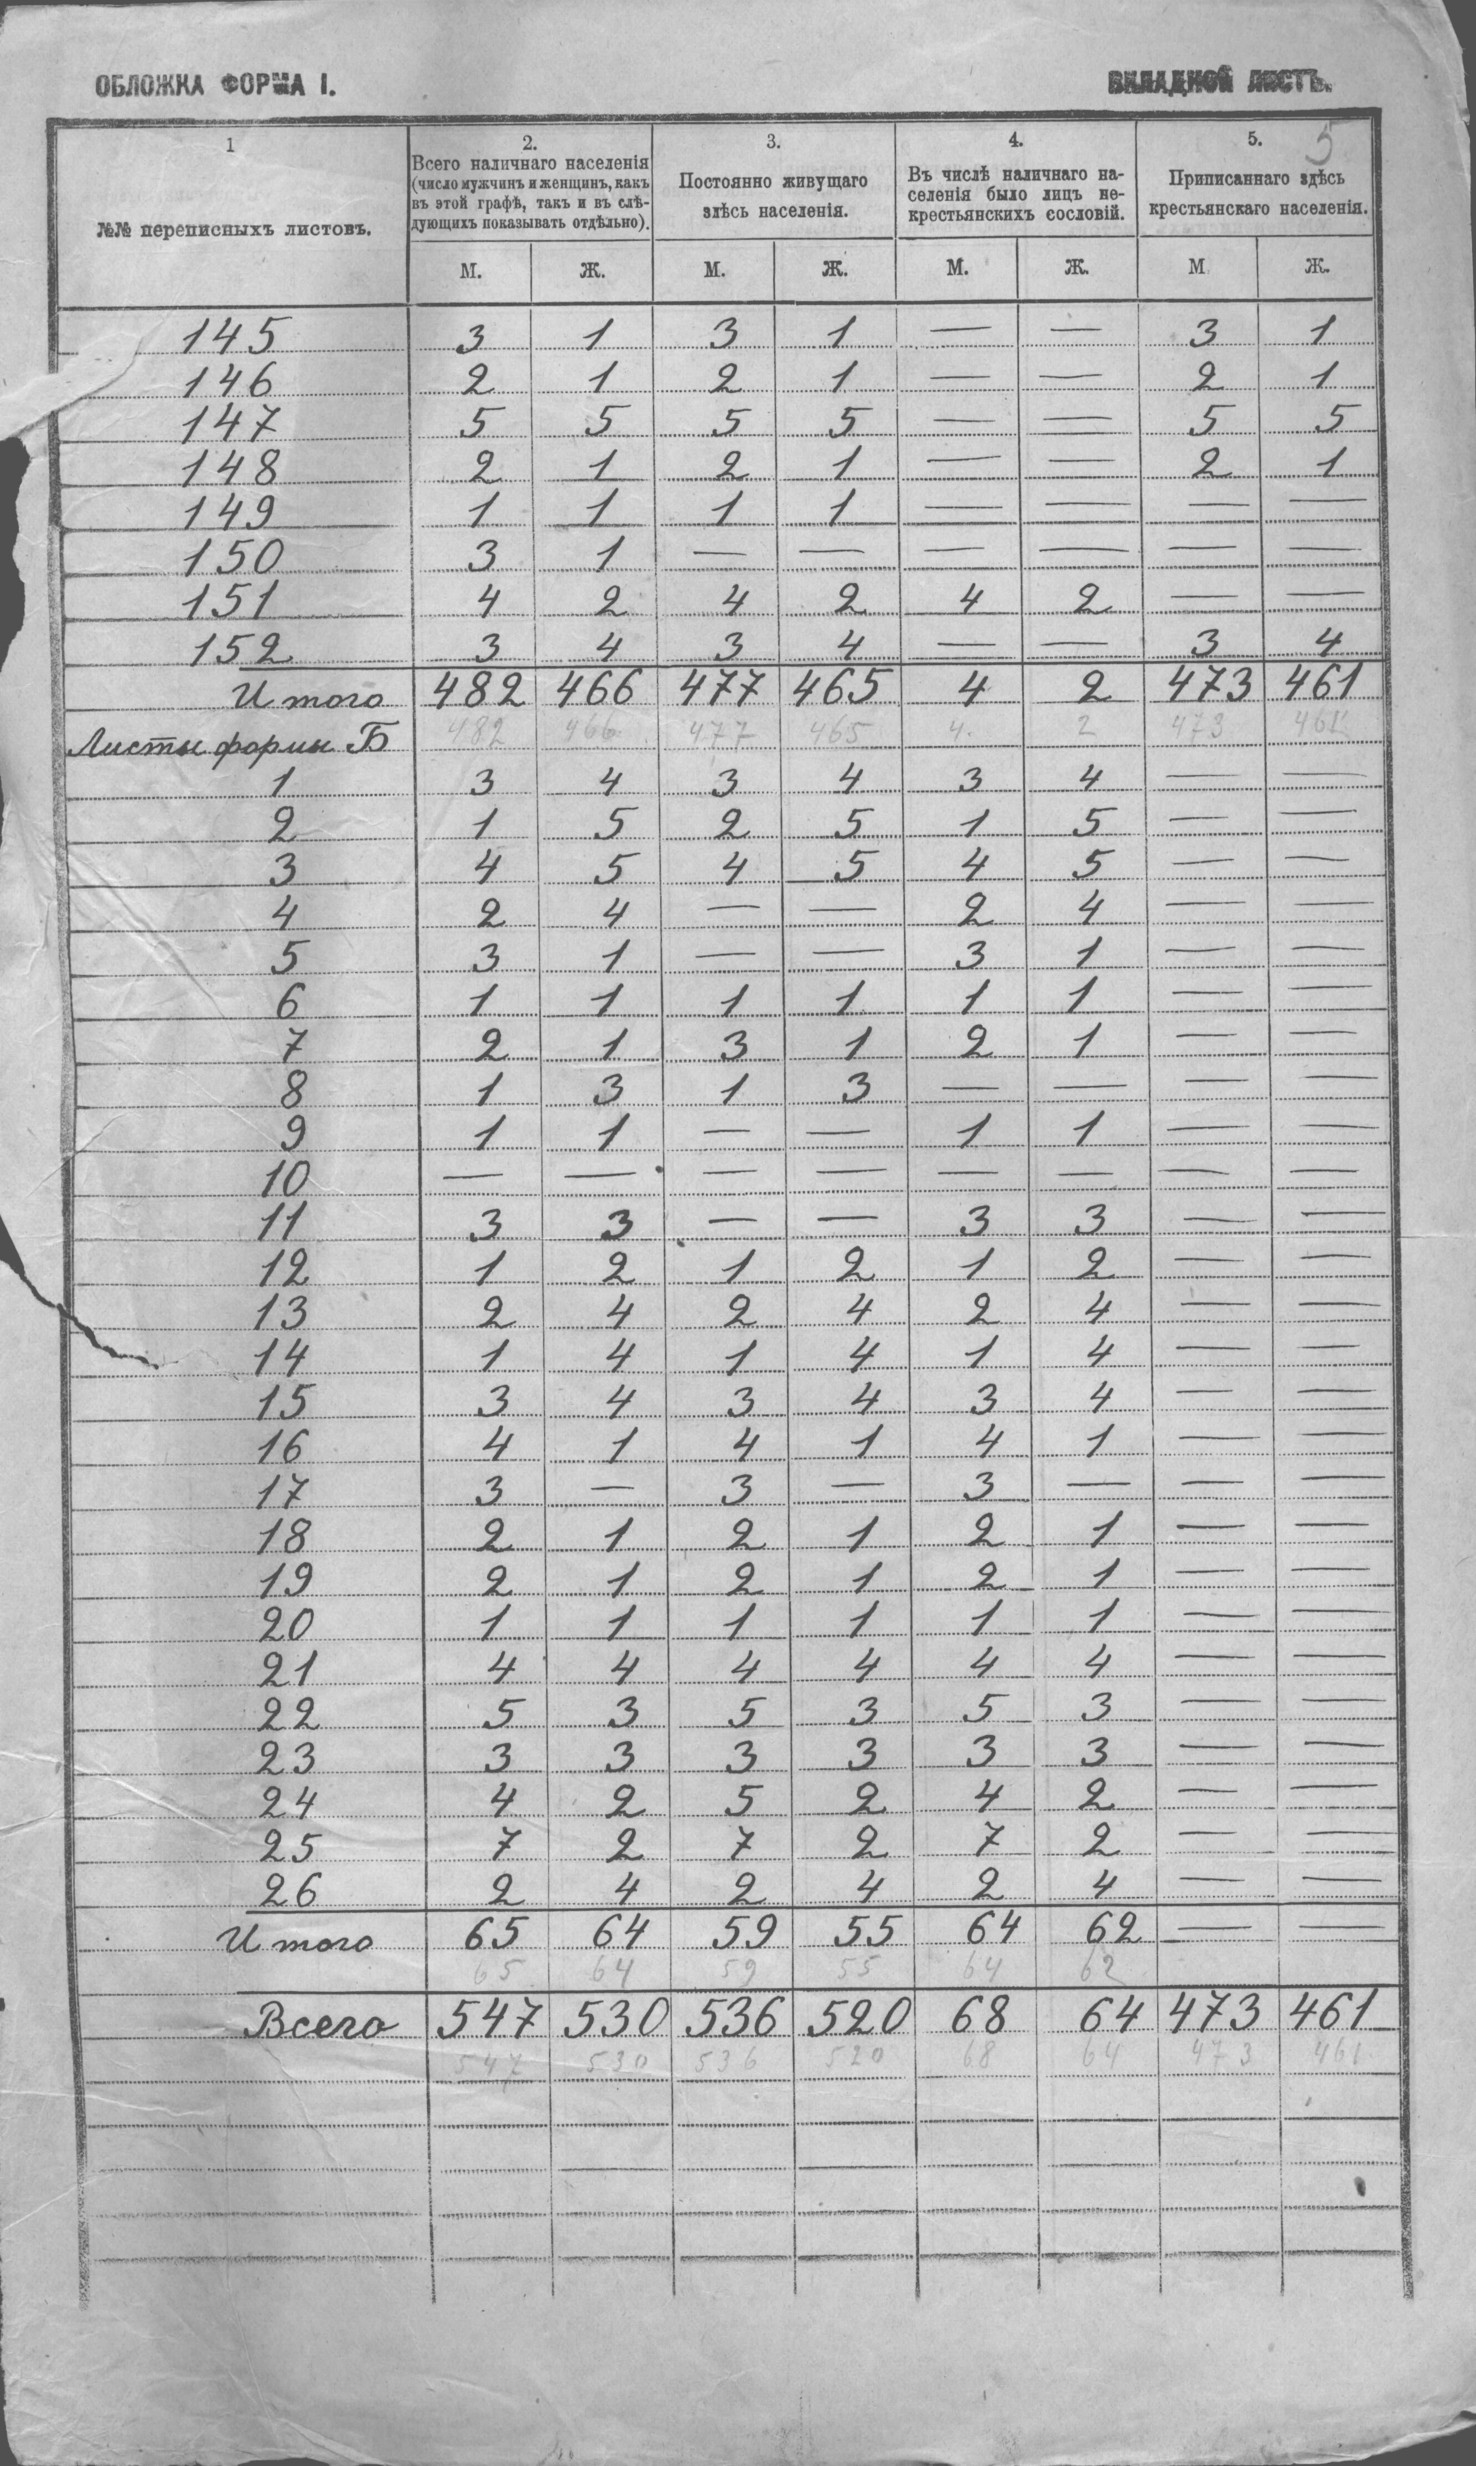 ОБЛОЖКА ФОРМА I. ВКЛАДНОЙ ЛИСТЪ.
5
1 2. 3. 4. 5.
№№ переписныхъ листовъ.
Всего наличнаго населенія
(число мужчинъ и женщинъ, какъ
въ этой графѣ, такъ и въ слѣ-
дующихъ показывать отдѣльно).
Постоянно живущаго
здѣсь населенія.
Въ числѣ наличнаго на-
селенія было лицъ не-
крестьянскихъ сословій.
Приписаннаго здѣсь
крестьянскаго населенія.
М. Ж. М. Ж. М. Ж. М Ж.
145 3 1 3 1 — — 3 1
146 2 1 2 1 — — 2 1
147 5 5 5 5 — — 5 5
148 2 1 2 1 — — 2 1
149 1 1 1 1 — — — —
150 3 1 — — — — — —
151 4 2 4 2 4 2 — —
152 3 4 3 4 — — 3 4
Итого 482 466 477 465 4 2 473 461
Листы формы Б 482 466 477 465 4. 2 473 461
1 3 4 3 4 3 4 — —
2 1 5 2 5 1 5 — —
3 4 5 4 5 4 5 — —
4 2 4 — — 2 4 — —
5 3 1 — — 3 1 — —
6 1 1 1 1 1 1 — —
7 2 1 3 1 2 1 — —
8 1 3 1 3 — — — —
9 1 1 — — 1 1 — —
10 — — — — — — — —
11 3 3 — — 3 3 — —
12 1 2 1 2 1 2 — —
13 2 4 2 4 2 4 — —
14 1 4 1 4 1 4 — —
15 3 4 3 4 3 4 — —
16 4 1 4 1 4 1 — —
17 3 — 3 — 3 — — —
18 2 1 2 1 2 1 — —
19 2 1 2 1 2 1 — —
20 1 1 1 1 1 1 — —
21 4 4 4 4 4 4 — —
22 5 3 5 3 5 3 — —
23 3 3 3 3 3 3 — —
24 4 2 5 2 4 2 — —
25 7 2 7 2 7 2 — —
26 2 4 2 4 2 4 — —
Итого 65 64 59 55 64 62 — —
65 64 59 55 64 62
Всего 547 530 536 520 68 64 473 461
547 530 536 520 68 64 473 461